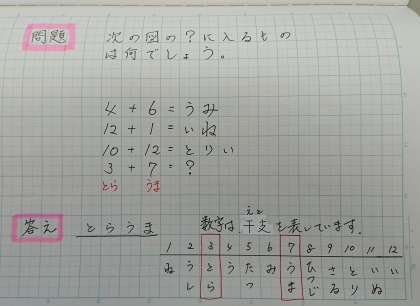 問題 次の図の?に入るもの
は何でしょう。
4 + 6 = うみ
12 + 1 = いね
10 + 12 = とりい
3 + 7 = ?
とら うま
答え とらうま 数字は、干支を表しています。
えと
1 2 3 4 5 6 7 8 9 10 11 12
ね う と う た み う ひ さ と い い
し ら つ ま つじ る り ぬ